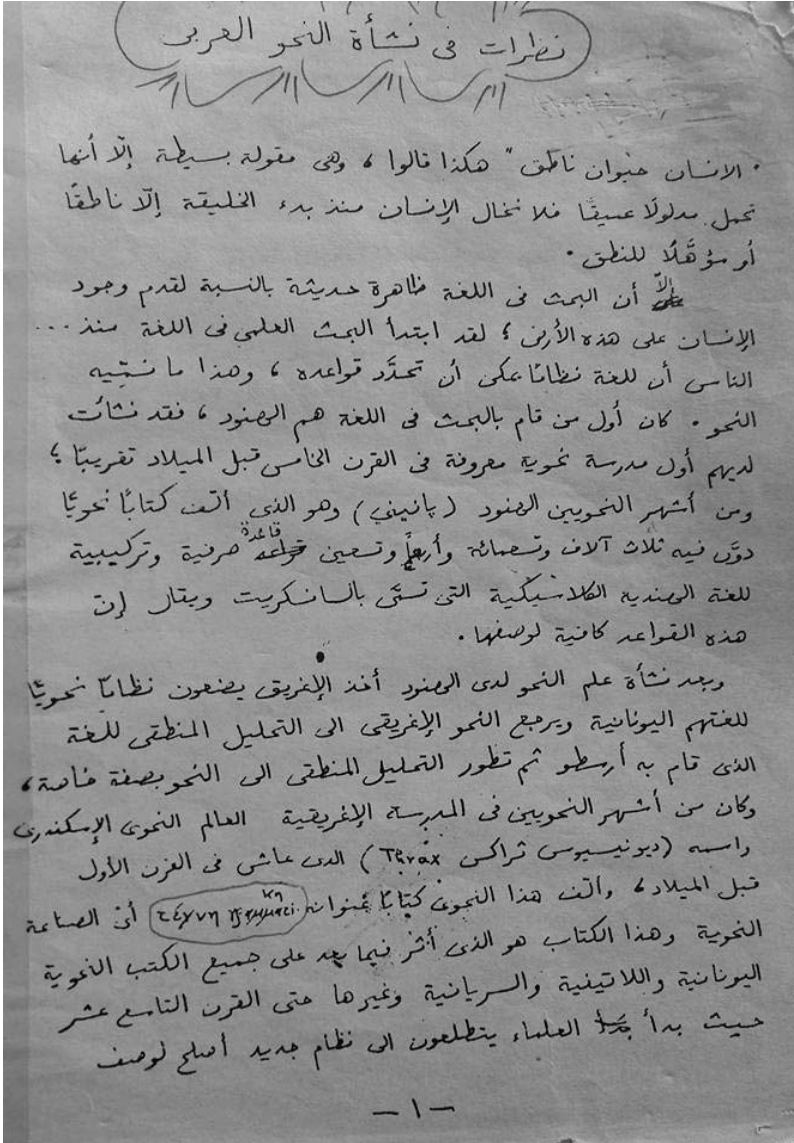 نظرات فى نشأة النحو العربى
" الانسان حيوان ناطق " هكذا قالوا ، وهى مقولة بسيطة إلّا أنها
تحمل مدلولًا عميقًا فلا نخال الإنسان منذ بدء الخليقة إلّا ناطقًا
أو مؤهَّلًا للنطق .
إلّا أن البحث فى اللغة ظاهرة حديثة بالنسبة لقدم وجود
الإنسان على هذه الأرض ؛ لقد ابتدأ البحث العلمى فى اللغة منذ ...
الناس أن للغة نظامًا يمكن أن تحدَّد قواعده ، وهذا ما نسمّيه
النحو . كان أول من قام بالبحث فى اللغة هم الهنود ، فقد نشأت
لديهم أول مدرسة نحوية معروفة فى القرن الخامس قبل الميلاد تقريبًا ؛
ومن أشهر النحويين الهنود (پانيني) وهو الذى ألّف كتابًا نحويًا
دوّن فيه ثلاث آلاف وتسعمائة وأربعًا وتسعين قاعدة صرفية وتركيبية
للغة الهنديه الكلاسيكية التى تسمَّى بالسانسكريت ويقال إن
هذه القواعد كافية لوصفها .
وبعد نشأة علم النحو لدى الهنود أخذ الإغريق يضعون نظامًا نحويًا
للغتهم اليونانية ويرجع النحو الإغريقى الى التحليل المنطقى للغة
الذى قام به أرسطو ثم تطور التحليل المنطقى الى النحو بصفة خاصة ،
وكان من أشهر النحويين فى المدرسة الإغريقية العالم النحوى الإسكندرى
واسمه (ديونيسيوس ثراكس Thrax) الذى عاش فى القرن الأول
قبل الميلاد ، وألّف هذا النحوى كتابًا عنوانه أى الصناعة
النحوية وهذا الكتاب هو الذى أثر فيما بعد على جميع الكتب النحوية
اليونانية واللاتينية والسريانية وغيرها حتى القرن التاسع عشر
حيث بدأ العلماء يتطلعون الى نظام جديد أصلح لوصف
— ١ —